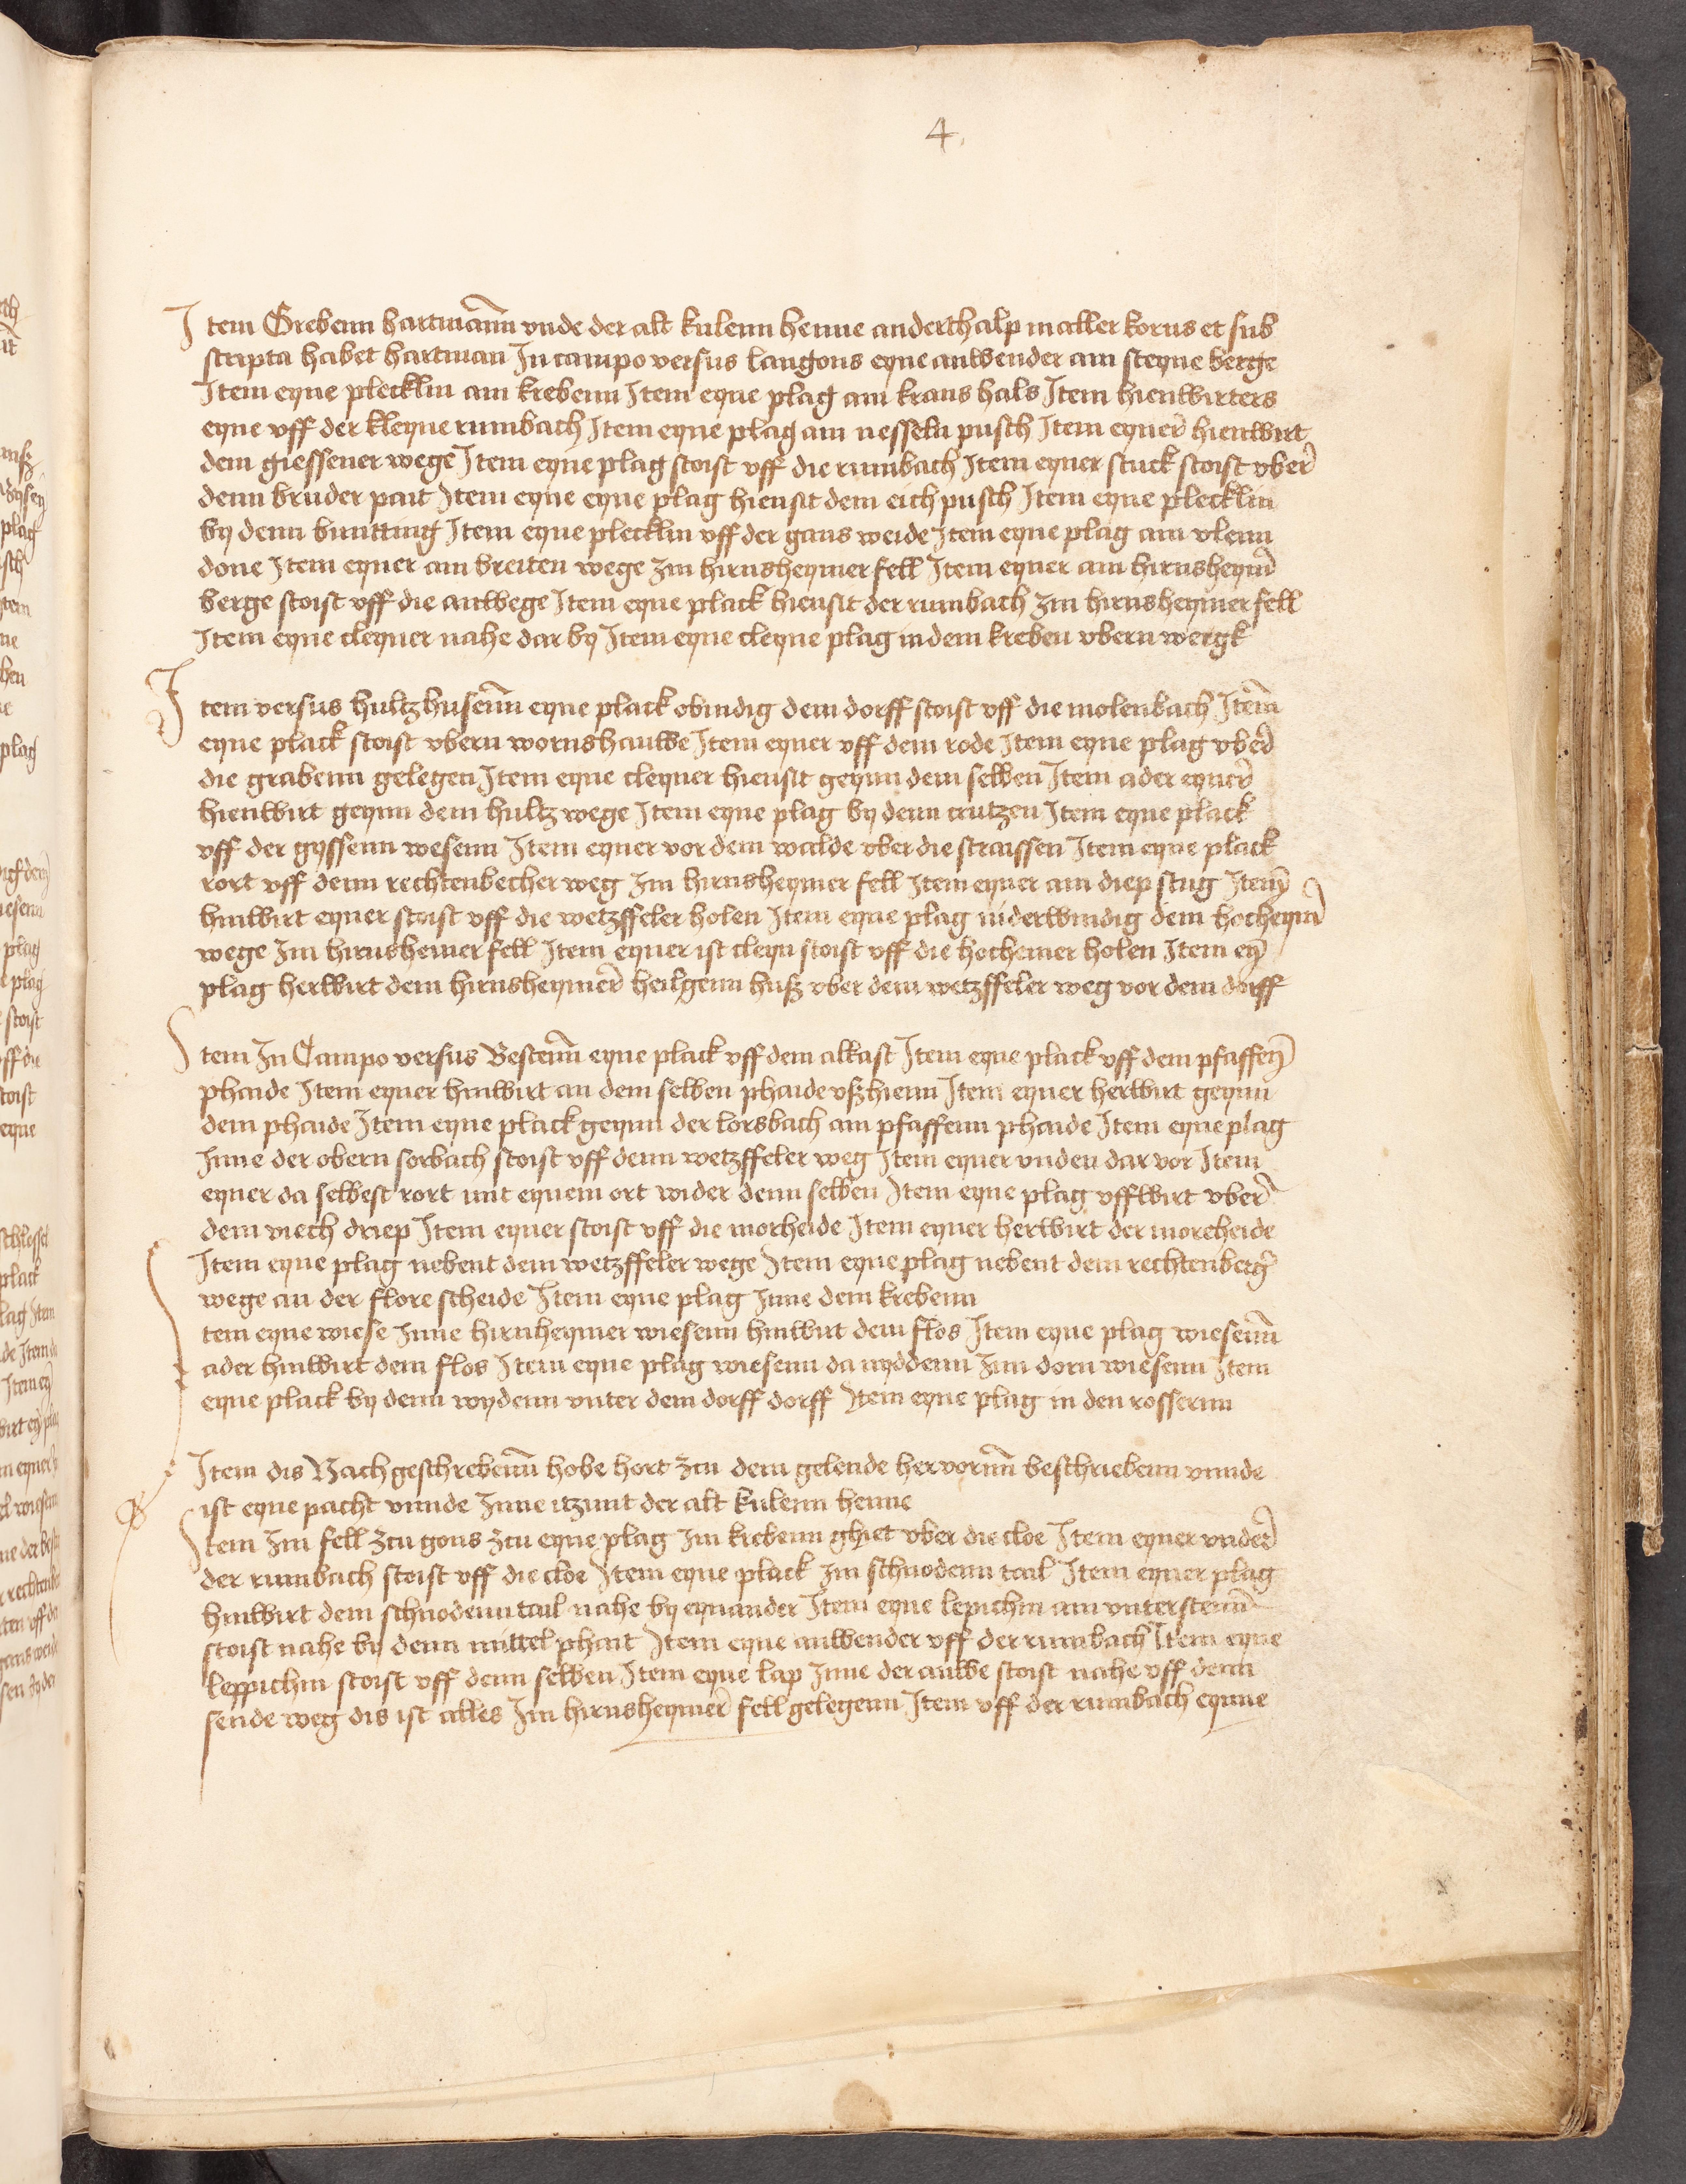 4
Item Grebenn hartmann vnde der alt kulenn henne anderthalp malter korns et sub
scripta habet hartman In campo versus langons eyne anwender am steyne berge
Item eyne plecklin am krebenn Item eyne plag am krans hals Item hienwirters
eyne vff der kleyne rumbach Item eyne plag am nesseln pusch Item eyner hienwirt
dem giessener wege Item eyne plag stoist vff die rumbach Item eyner stuck stoist vber
denn bruder pait Item eyne eyne plag hiensit dem eich pusch Item eyne plecklin
by denn Item eyne plecklin vff der gans weide Item eyne plag am vlenn
done Item eyner am breiten wege Im hirnsheymer fell Item eyner am hirnsheym
berge stoist vff die anwege Item eyne plack hiensit der rumbach Im hirnsheymer fell
Item eyne cleyner nahe dar by Item eyne cleyne plag in dem kreben vbern wergk
Item versus hultzhusenn eyne plack obindig dem dorff stoist vff die molenbach Item
eyne plack stoist vbern wornshauwe Item eyner vff dem rode Item eyne plag vber
die grabenn gelegen Item eyne cleyner hiensit geynn dem selben Item ader eyner
hienwirt geynn dem hultz wege Item eyne plag by denn crutzen Item eyne plack
vff der gyssenn wesenn Item eyner vor dem walde vber die straissen Item eyne plack
rort vff denn rechtenbecher weg Im hirnsheymer fell Item eyner am diep stug Item
hinwirt eyner stoist vff die wetzffeler holen Item eyne plag niderwindig dem hocheym
wege Im hirnsheimer fell Item eyner ist cleyn stoist vff die hochemer holen Item ey
plag herwirt dem hirnsheymer heilgenn huß vber dem wetzffeler weg vor dem dorff
Item In Campo versus Bestenn eyne plack vff dem alkast Item eyne plack vff dem pfaffen
phaide Item eyner hinwirt an dem selben phaide vßhienn Item eyner herwirt geynn
dem phaide Item eyne plack geynn der lorsbach am pfaffenn phaide Item eyne plag
Inne der obern sorbach stoist vff denn wetzffeler weg Item eyner vnden dar vor Item
eyner da selbest rort mit eynem ort wider denn selben Item eyne plag vffwirt vber
dem viech driep Item eyner stoist vff die morheide Item eyner herwirt der moreheide
Item eyne plag nebent dem wetzffeler wege Item eyne plag nebent dem rechtenberg
wege an der flore scheide Item eyne plag Inne dem krebenn
Item eyne wiese Inne hirnheymer wiesenn hinwirt dem flos Item eyne plag wiesenn
ader hinwirt dem flos Item eyne plag wiesenn da nyddenn Inn dorn wiesenn Item
eyne plack by denn wydenn vnter dem dorff dorff Item eyne plag in den rossernn
Item dis Nachgeschrebenn hobe hort zcu dem gelende hervornn beschriebenn vnnde
ist eyne pacht vnnde Inne itzunt der alt kulenn henne
Item Im fell zcu gons zcu eyne plag Im krebenn ghiet vber die cloe Item eyner vnder
der rumbach stoist vff die cloe Item eyne plack Im schnodenn tail Item eyner plag
hinwirt dem schnodenn tail nahe by eynander Item eyne lepichin am vnterstenn
stoist nahe by denn mittel phait Item eyne anwender vff der rumbach Item eyne
leppichin stoist vff denn selben Item eyne lap Inne der auwe stoist nahe vff denn
sende weg dis ist alles Im hirnsheymer fell gelegenn Item vff der rumbach eynne